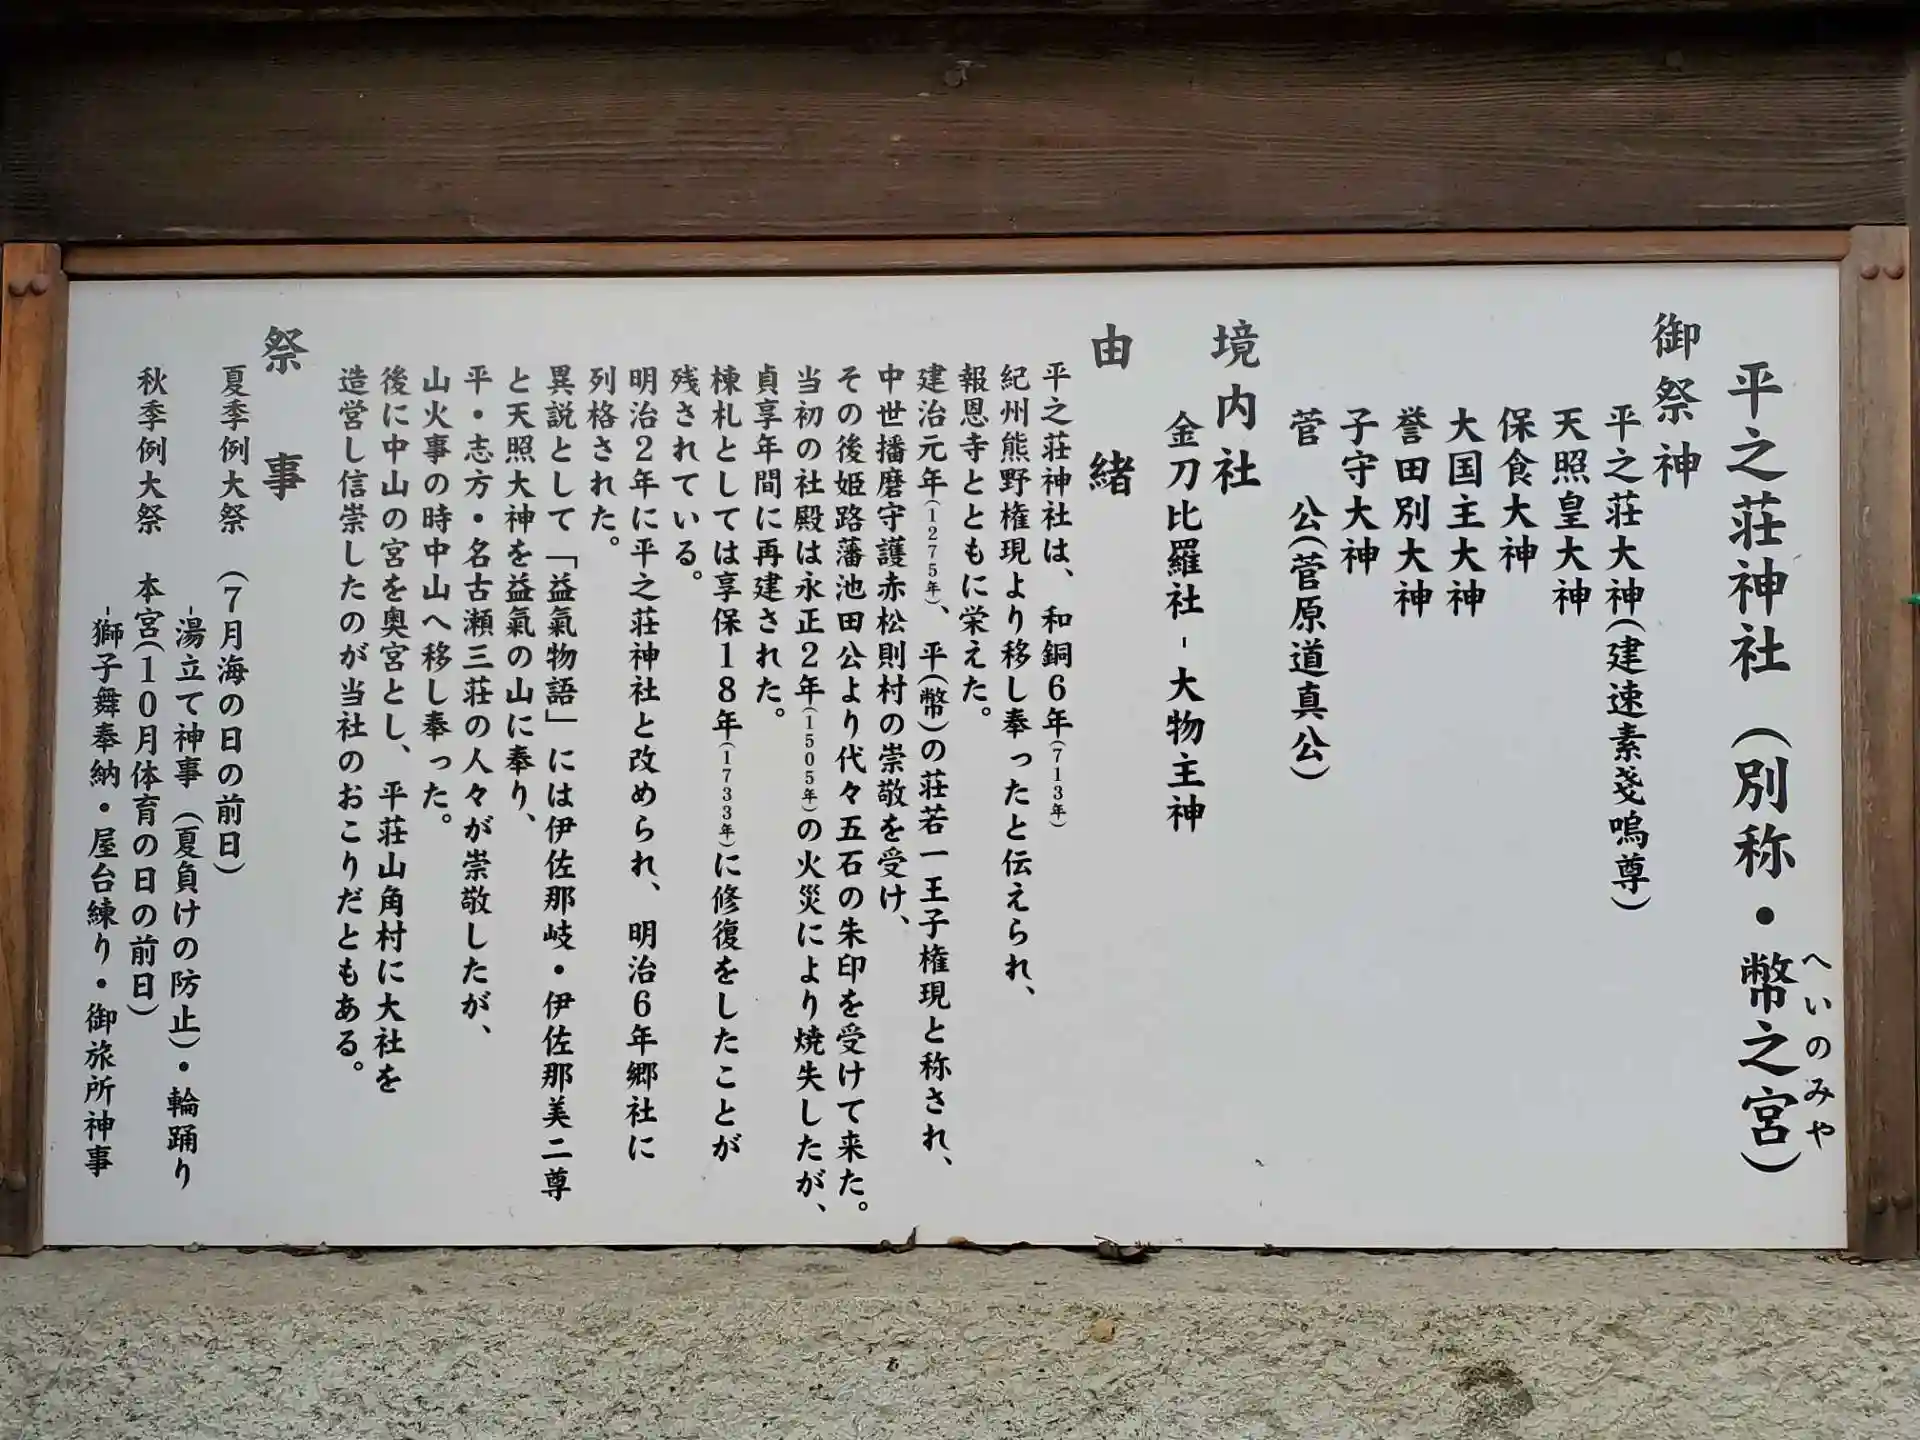 平之荘神社（別称・幣之宮）
へいのみや
御祭神
平之荘大神(建速素戔嗚尊)
天照皇大神
保食大神
大国主大神
誉田別大神
子守大神
菅　公(菅原道真公)
境内社
金刀比羅社 - 大物主神
由緒
平之荘神社は、和銅6年(713年)
紀州熊野権現より移し奉ったと伝えられ、
報恩寺とともに栄えた。
建治元年(1275年)、平(幣)の荘若一王子権現と称され、
中世播磨守護赤松則村の崇敬を受け、
その後姫路藩池田公より代々五石の朱印を受けて来た。
当初の社殿は永正2年(1505年)の火災により焼失したが、
貞享年間に再建された。
棟札としては享保18年(1733年)に修復をしたことが
残されている。
明治2年に平之荘神社と改められ、明治6年郷社に
列格された。
異説として「益氣物語」には伊佐那岐・伊佐那美二尊
と天照大神を益氣の山に奉り、
平・志方・名古瀬三荘の人々が崇敬したが、
山火事の時中山へ移し奉った。
後に中山の宮を奥宮とし、平荘山角村に大社を
造営し信崇したのが当社のおこりだともある。
祭事
夏季例大祭　(7月海の日の前日)
-湯立て神事（夏負けの防止）・輪踊り
秋季例大祭　本宮(10月体育の日の前日)
-獅子舞奉納・屋台練り・御旅所神事